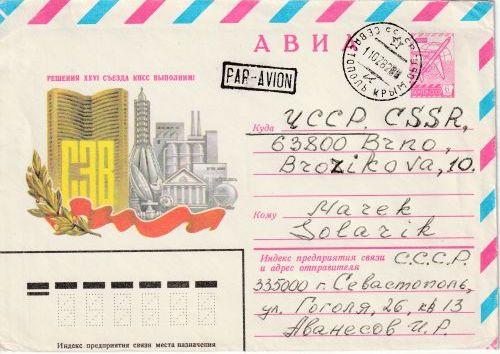 АВИА
РЕШЕНИЯ XXVI СЪЕЗДА КПСС ВЫПОЛНИМ!
PAR-AVION
СЕВАСТОПОЛЬ КРЫМ.
СЭВ
Куда
ЧССР. CSSR,
63800 Brno,
Brozikova, 10.
Кому
Marek
Solarik
Индекс предприятия связи
и адрес отправителя
С.С.С.Р.
335000 г. Севастополь,
ул. Гоголя, 26, кв 13
Аванесов И.Р.
Индекс предприятия связи места назначения